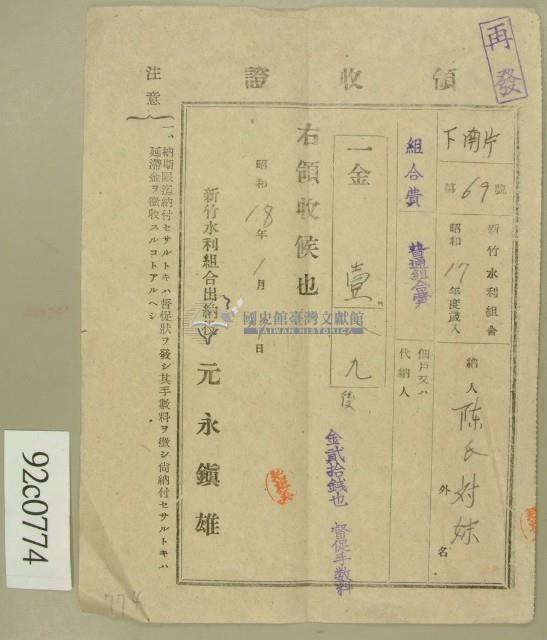 再發
領收證
下南片
第69號
新竹水利組合
昭和17年度歲入
納人 陳氏對妹
外 名
組合費
普通組合費
佃戶又ハ
代納人
一金 壹 九
後
金貳拾錢也 督促手數料
右領收候也
昭和18年1月 日
新竹水利組合出納役
元永鎭雄
國史館臺灣文獻館
TAIWAN HISTORICA
注意
一、納期限迄納付セサルトキハ督促狀ヲ發シ其手數料ヲ徵シ尙納付セサルトキハ
延滯金ヲ徵收スルコトアルヘシ
92c0774
774